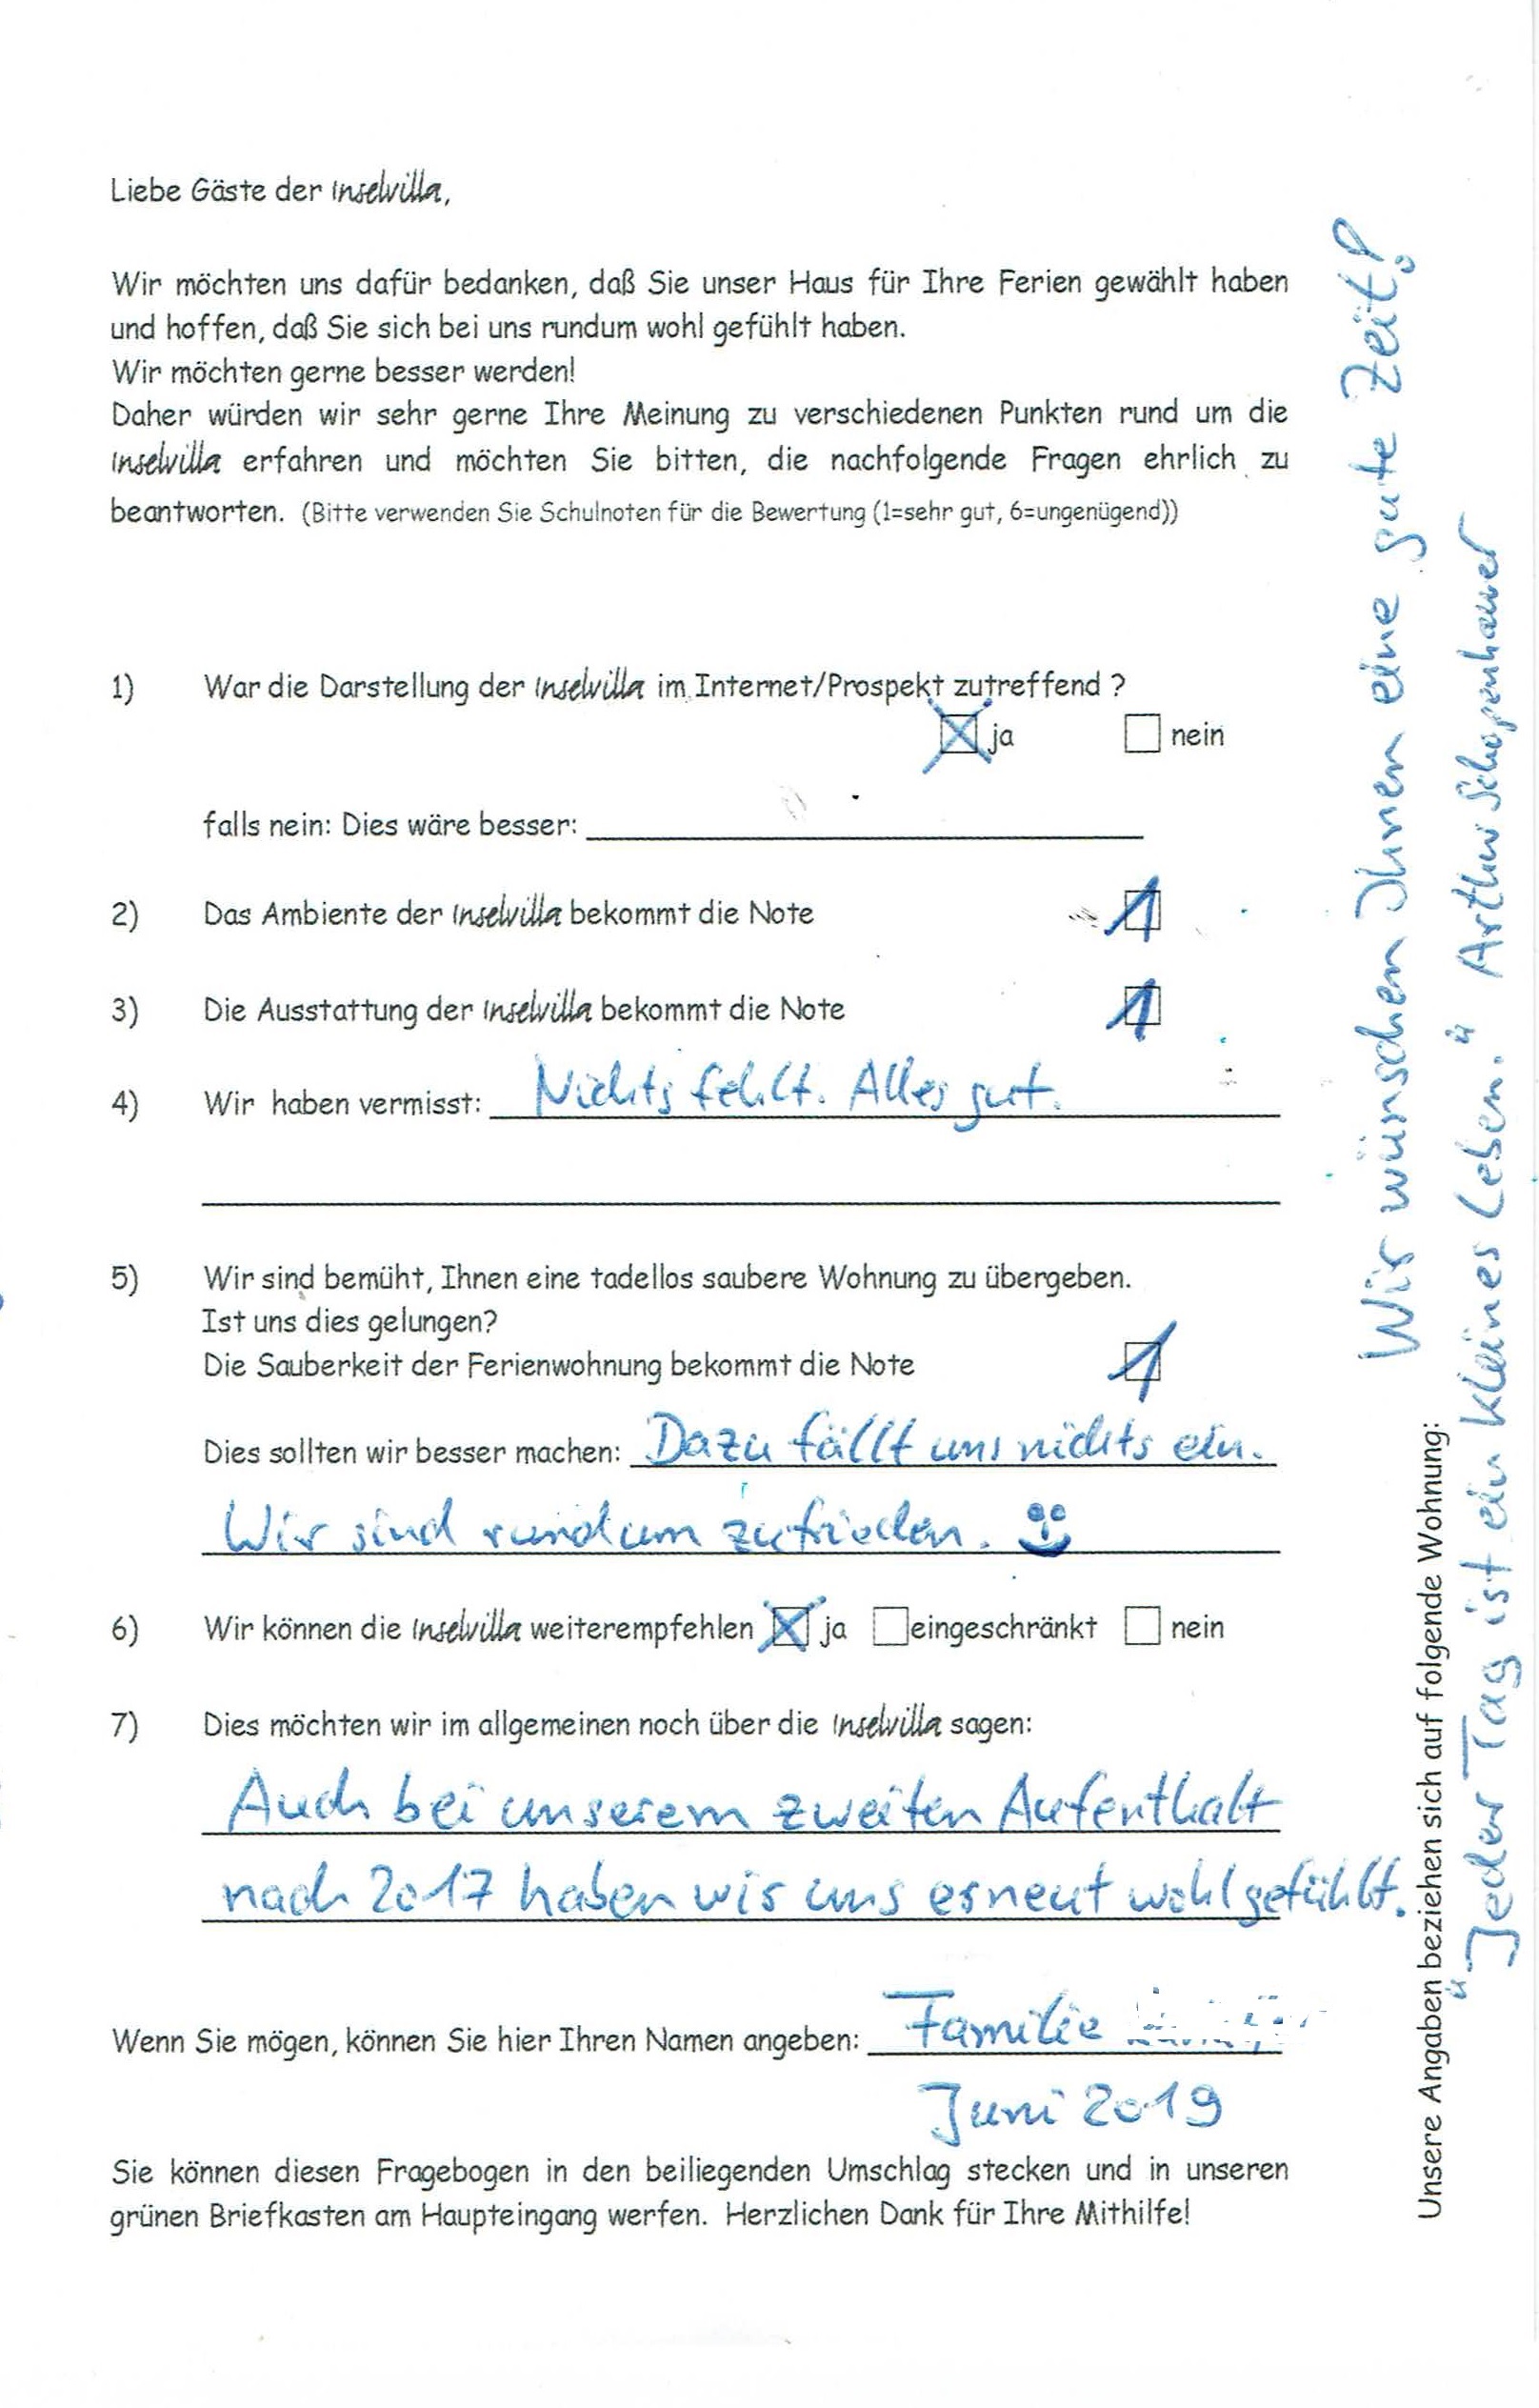 Liebe Gäste der Inselvilla,
Wir möchten uns dafür bedanken, daß Sie unser Haus für Ihre Ferien gewählt haben
und hoffen, daß Sie sich bei uns rundum wohl gefühlt haben.
Wir möchten gerne besser werden!
Daher würden wir sehr gerne Ihre Meinung zu verschiedenen Punkten rund um die
Inselvilla erfahren und möchten Sie bitten, die nachfolgende Fragen ehrlich zu
beantworten. (Bitte verwenden Sie Schulnoten für die Bewertung (1=sehr gut, 6=ungenügend))
1) War die Darstellung der Inselvilla im Internet/Prospekt zutreffend ?
ja nein
falls nein: Dies wäre besser:
2) Das Ambiente der Inselvilla bekommt die Note 1
3) Die Ausstattung der Inselvilla bekommt die Note 1
4) Wir haben vermisst: Nichts fehlt. Alles gut.
5) Wir sind bemüht, Ihnen eine tadellos saubere Wohnung zu übergeben.
Ist uns dies gelungen?
Die Sauberkeit der Ferienwohnung bekommt die Note 1
Dies sollten wir besser machen: Dazu fällt uns nichts ein.
Wir sind rundum zufrieden.
6) Wir können die Inselvilla weiterempfehlen ja eingeschränkt nein
7) Dies möchten wir im allgemeinen noch über die Inselvilla sagen:
Auch bei unserem zweiten Aufenthalt
nach 2017 haben wir uns erneut wohlgefühlt.
Wenn Sie mögen, können Sie hier Ihren Namen angeben: Familie
Juni 2019
Sie können diesen Fragebogen in den beiliegenden Umschlag stecken und in unseren
grünen Briefkasten am Haupteingang werfen. Herzlichen Dank für Ihre Mithilfe!
Wir wünschen Ihnen eine gute Zeit!
Unsere Angaben beziehen sich auf folgende Wohnung:
"Jeder Tag ist ein kleines Leben." Arthur Schopenhauer